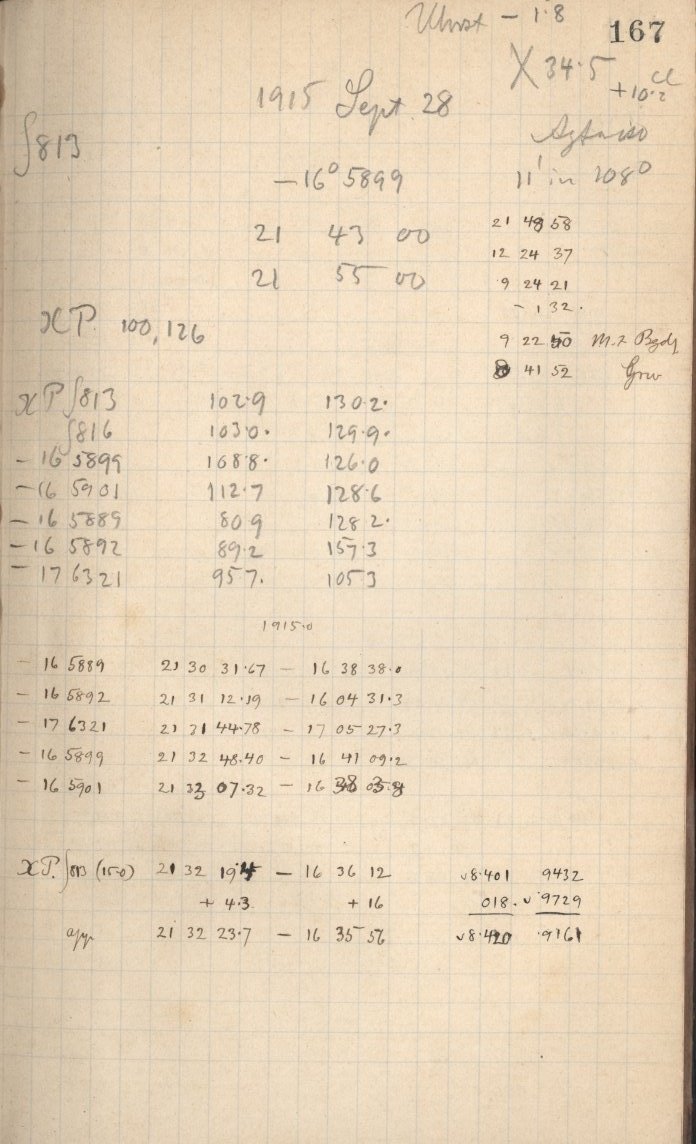 - 1.8
167
X 34.5 + 10.2
1915 Sept. 28
∫813
-16° 5899
11' in 108°
21 43 00
21 55 00
21 49 58
12 24 37
9 24 21
- 1 32.
9 22 50
41 52
XP. 100, 126
XP ∫813 102.9 130.2.
∫816 103.0. 129.9.
- 16 5899 108.8. 126.0
-16 5901 112.7 128.6
- 16 5889 80 9 128 2.
- 16 5892 89.2 157.3
- 17 6321 95 7. 105 3
1915.0
- 16 5889 21 30 31.67 - 16 38 38.0
- 16 5892 21 31 12.19 - 16 04 31.3
- 17 6321 21 31 44.78 - 17 05 27.3
- 16 5899 21 32 48.40 - 16 41 09.2
- 16 5901 21 33 07.32 - 16
XP. ∫813 (15.0) 21 32 19.4 - 16 36 12 √8.401 9432
+ 4.3 + 16 018. √ 9729
app. 21 32 23.7 - 16 35 56 √8.420 .9161